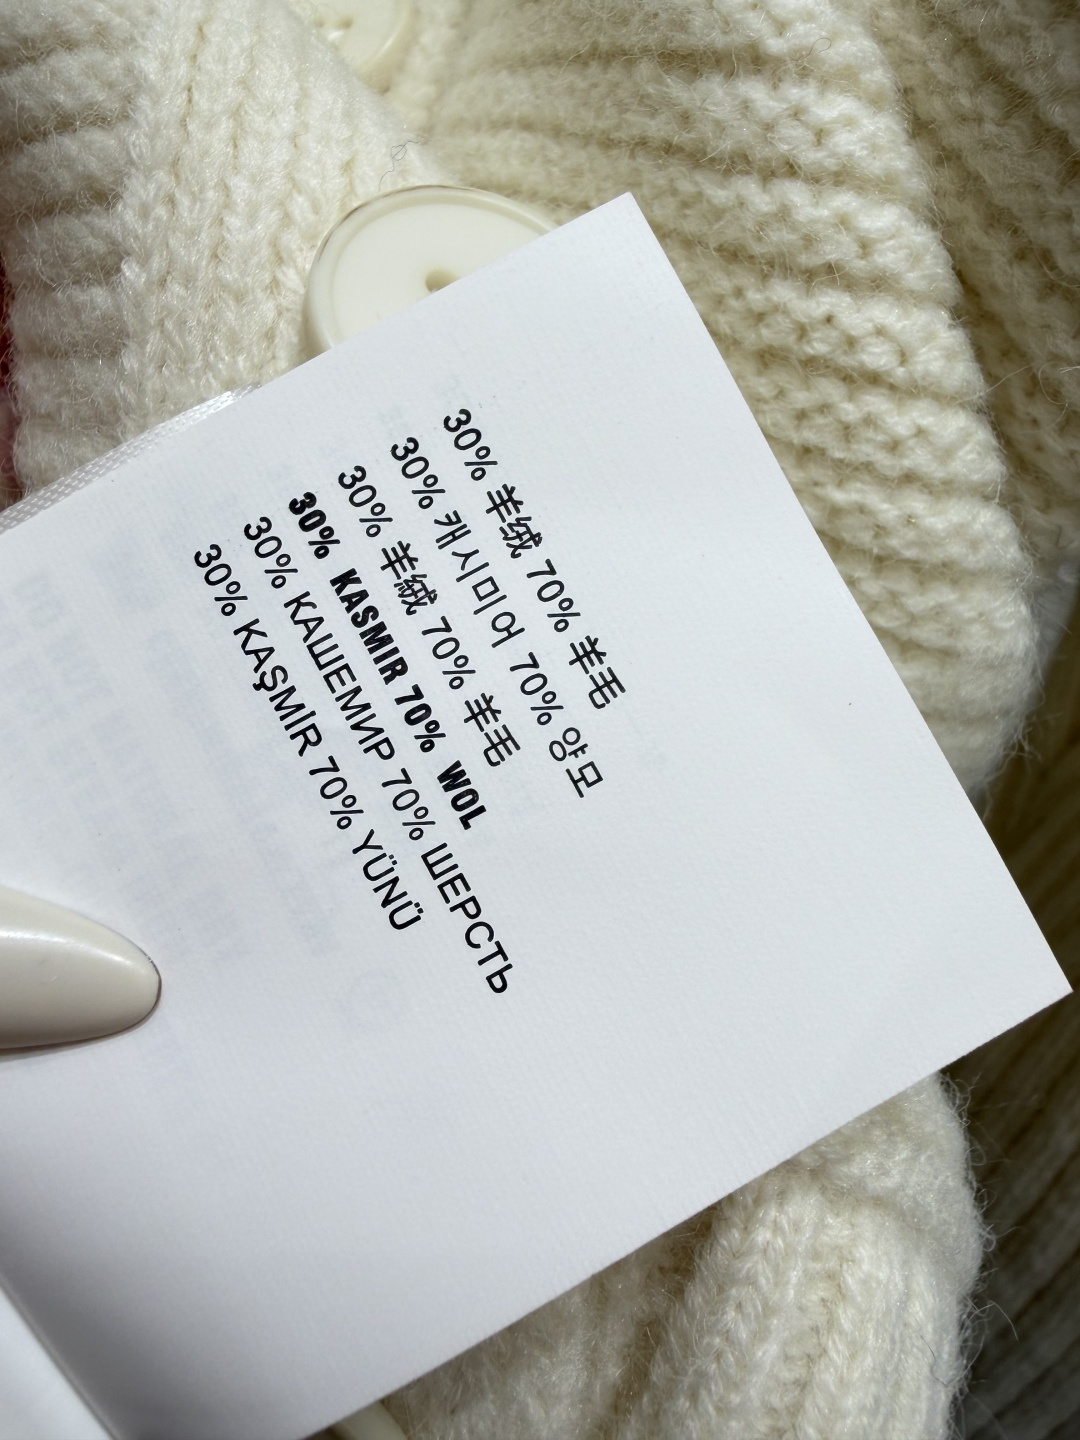 30% 羊绒 70% 羊毛
30% 캐시미어 70% 양모
30% 羊絨 70% 羊毛
30% KASMIR 70% WOL
30% КАШЕМИР 70% ШЕРСТЬ
30% KAŞMİR 70% YÜNÜ